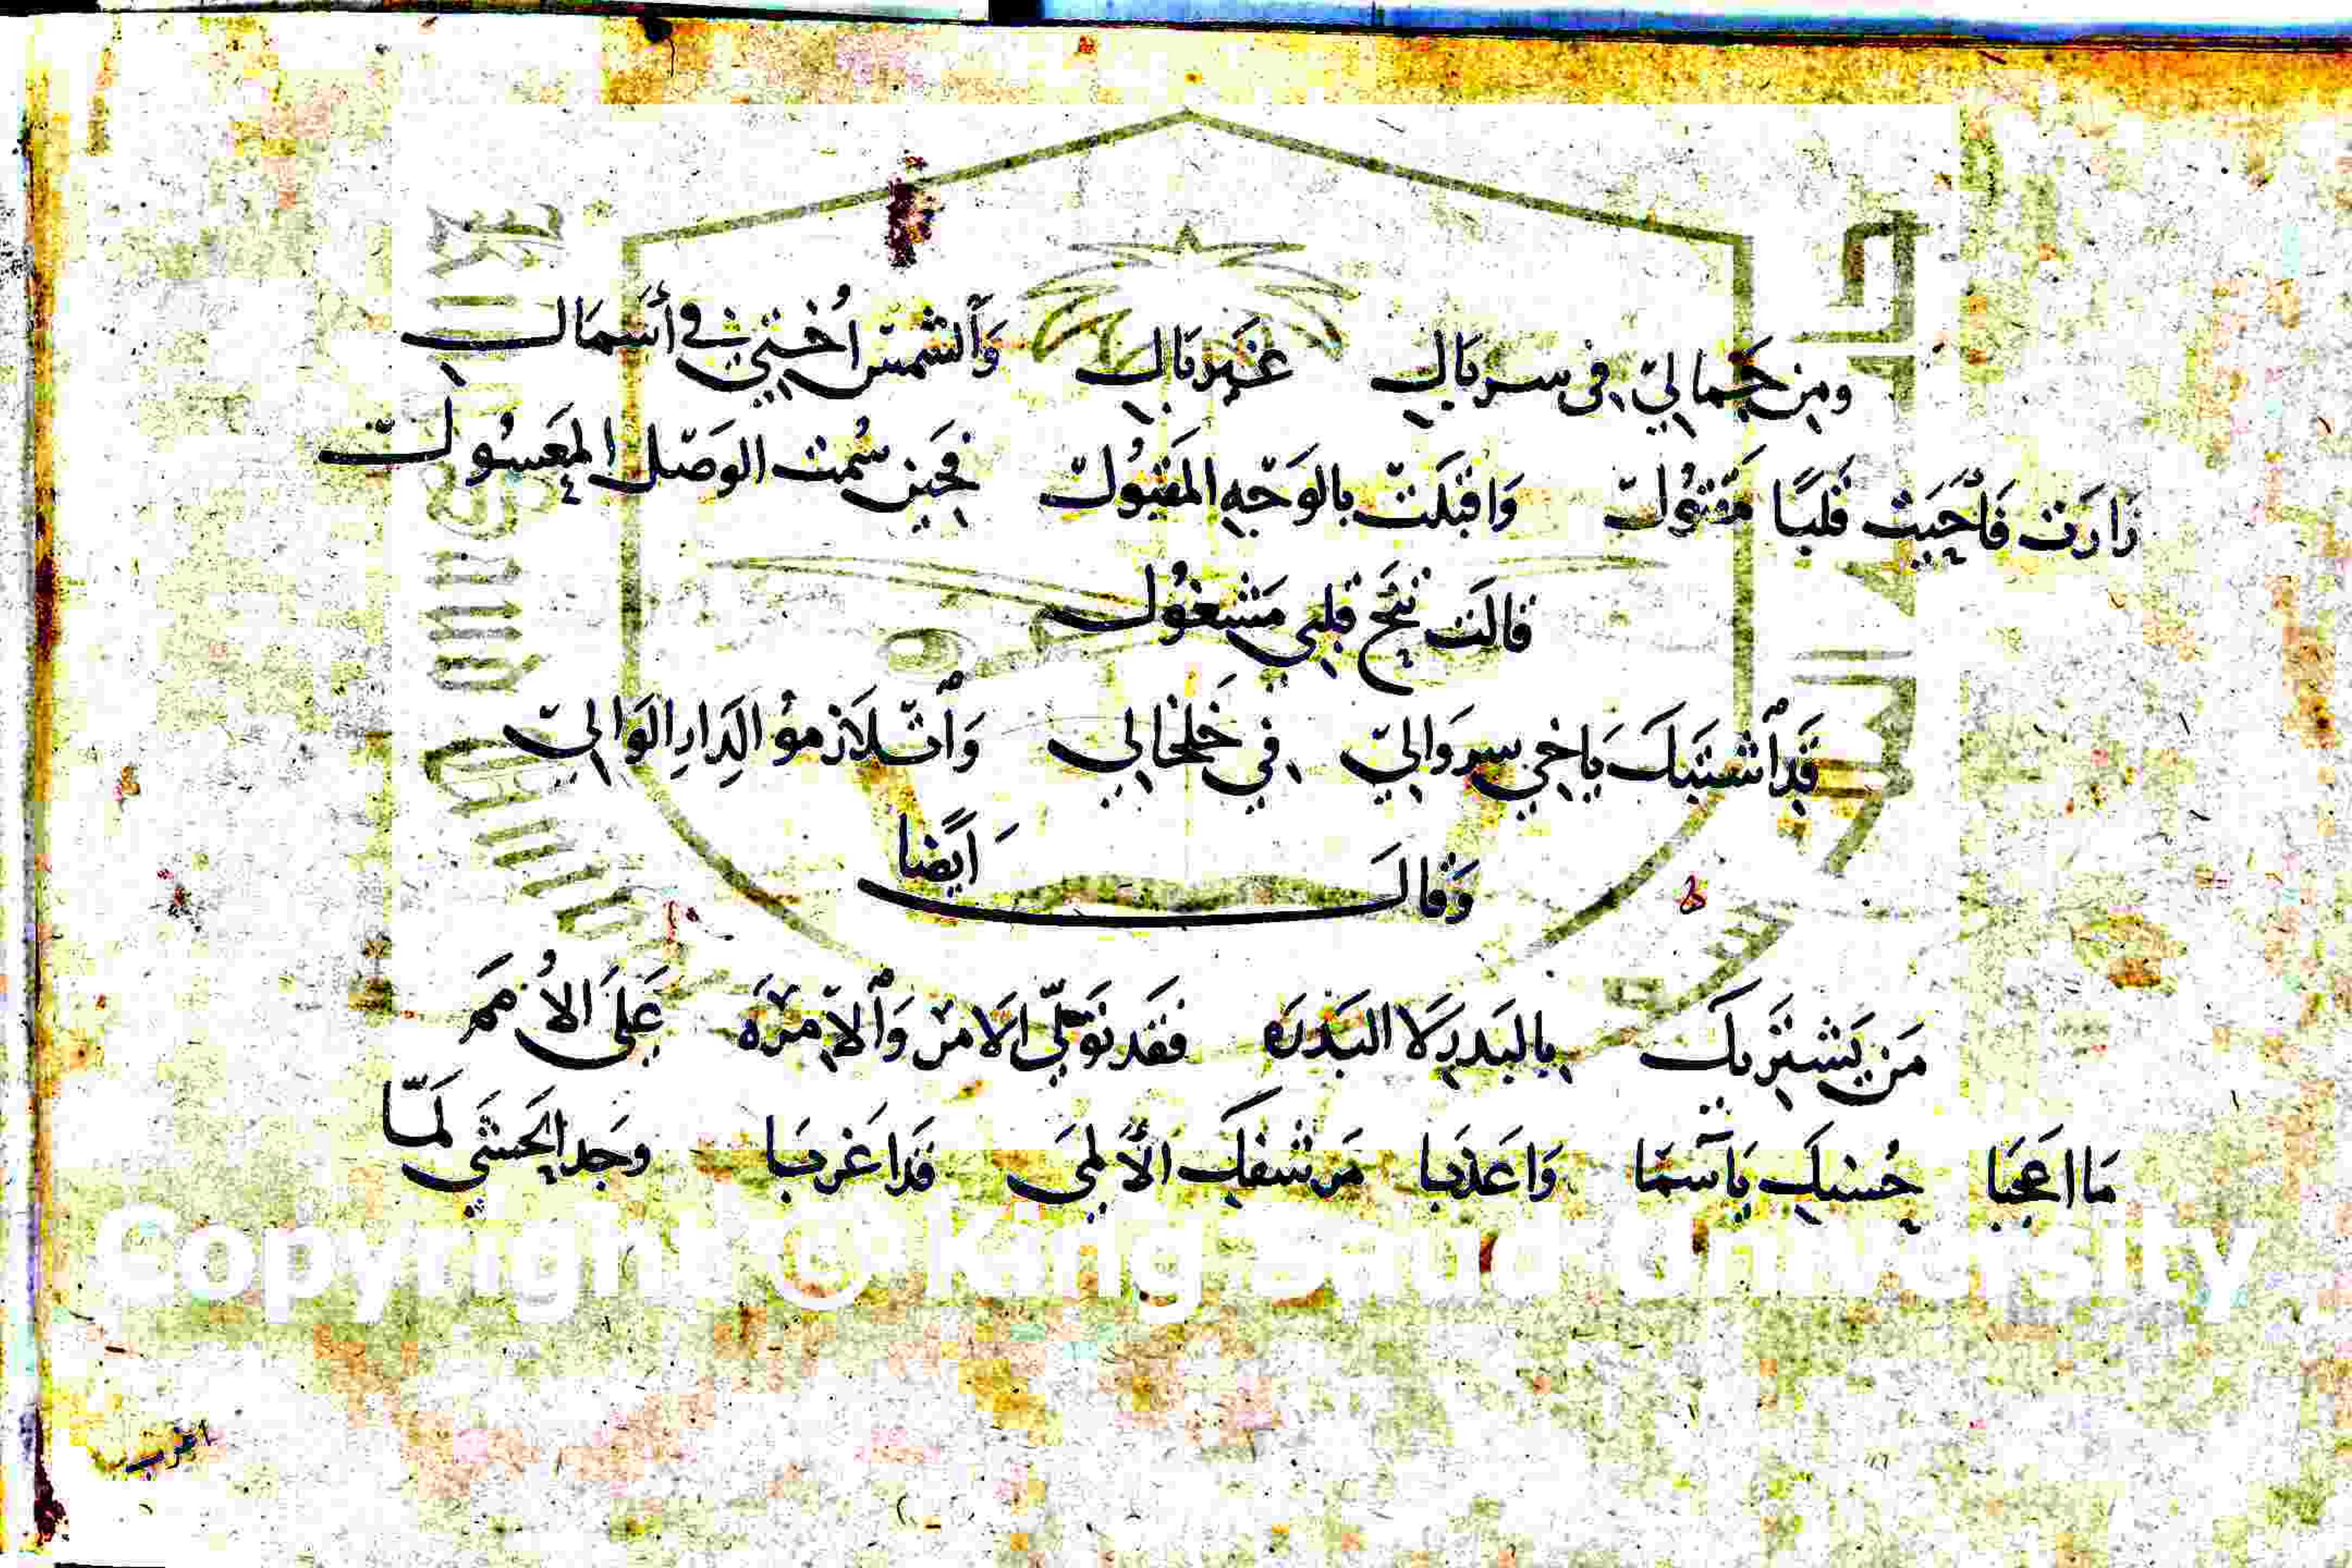 ومِن جَمالِيّ فِى سربَالِ غَيرَ بَالِ وَٱلشمسُ اُختِي فِے أسَمَالِ
زَارَت فَاَحيَت قَلبًا مَقتُولْ وَاقبَلَتْ بالوَجْهِ المَقبُولْ فحَِين سُمت الوَصْل المعَسُولْ
قالَت تَنَحَّ قلبي مَشغُول
قَدِ ٱشتَبَكَ يَاخِي سروَالِيّ فِي خَلخالِي وَٱتْلَازموُ الدَارِ الوَالِيّ
وَقالَ اَيضًا
مَن يَشترِيكَ بالبَدرِ لَا البَدرَه فقَد توَلّي الامرْ وَٱلاِمْرَهَ عَلىَ الاُمَم
مَا اعَجبَا حُسنكِ يَا آسمَا وَاعَذبا مَرشفكِ الاَلمىَ قَد اَغربَا وجَد الحَشَي لَمَّا
Copyright © King Saud University
اغرب